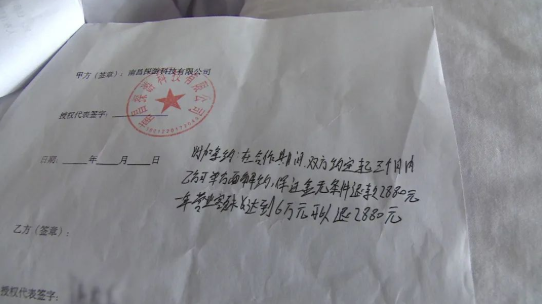 甲方（签章）：南昌探游科技有限公司
授权代表签字：
日期：____年____月____日
附加条约：在合作期间，双方约定起三个月内
乙方可单方面解约，保证金无条件退款2880元
一年营业额达到6万元可以退2880元
乙方（签章）：
授权代表签字：